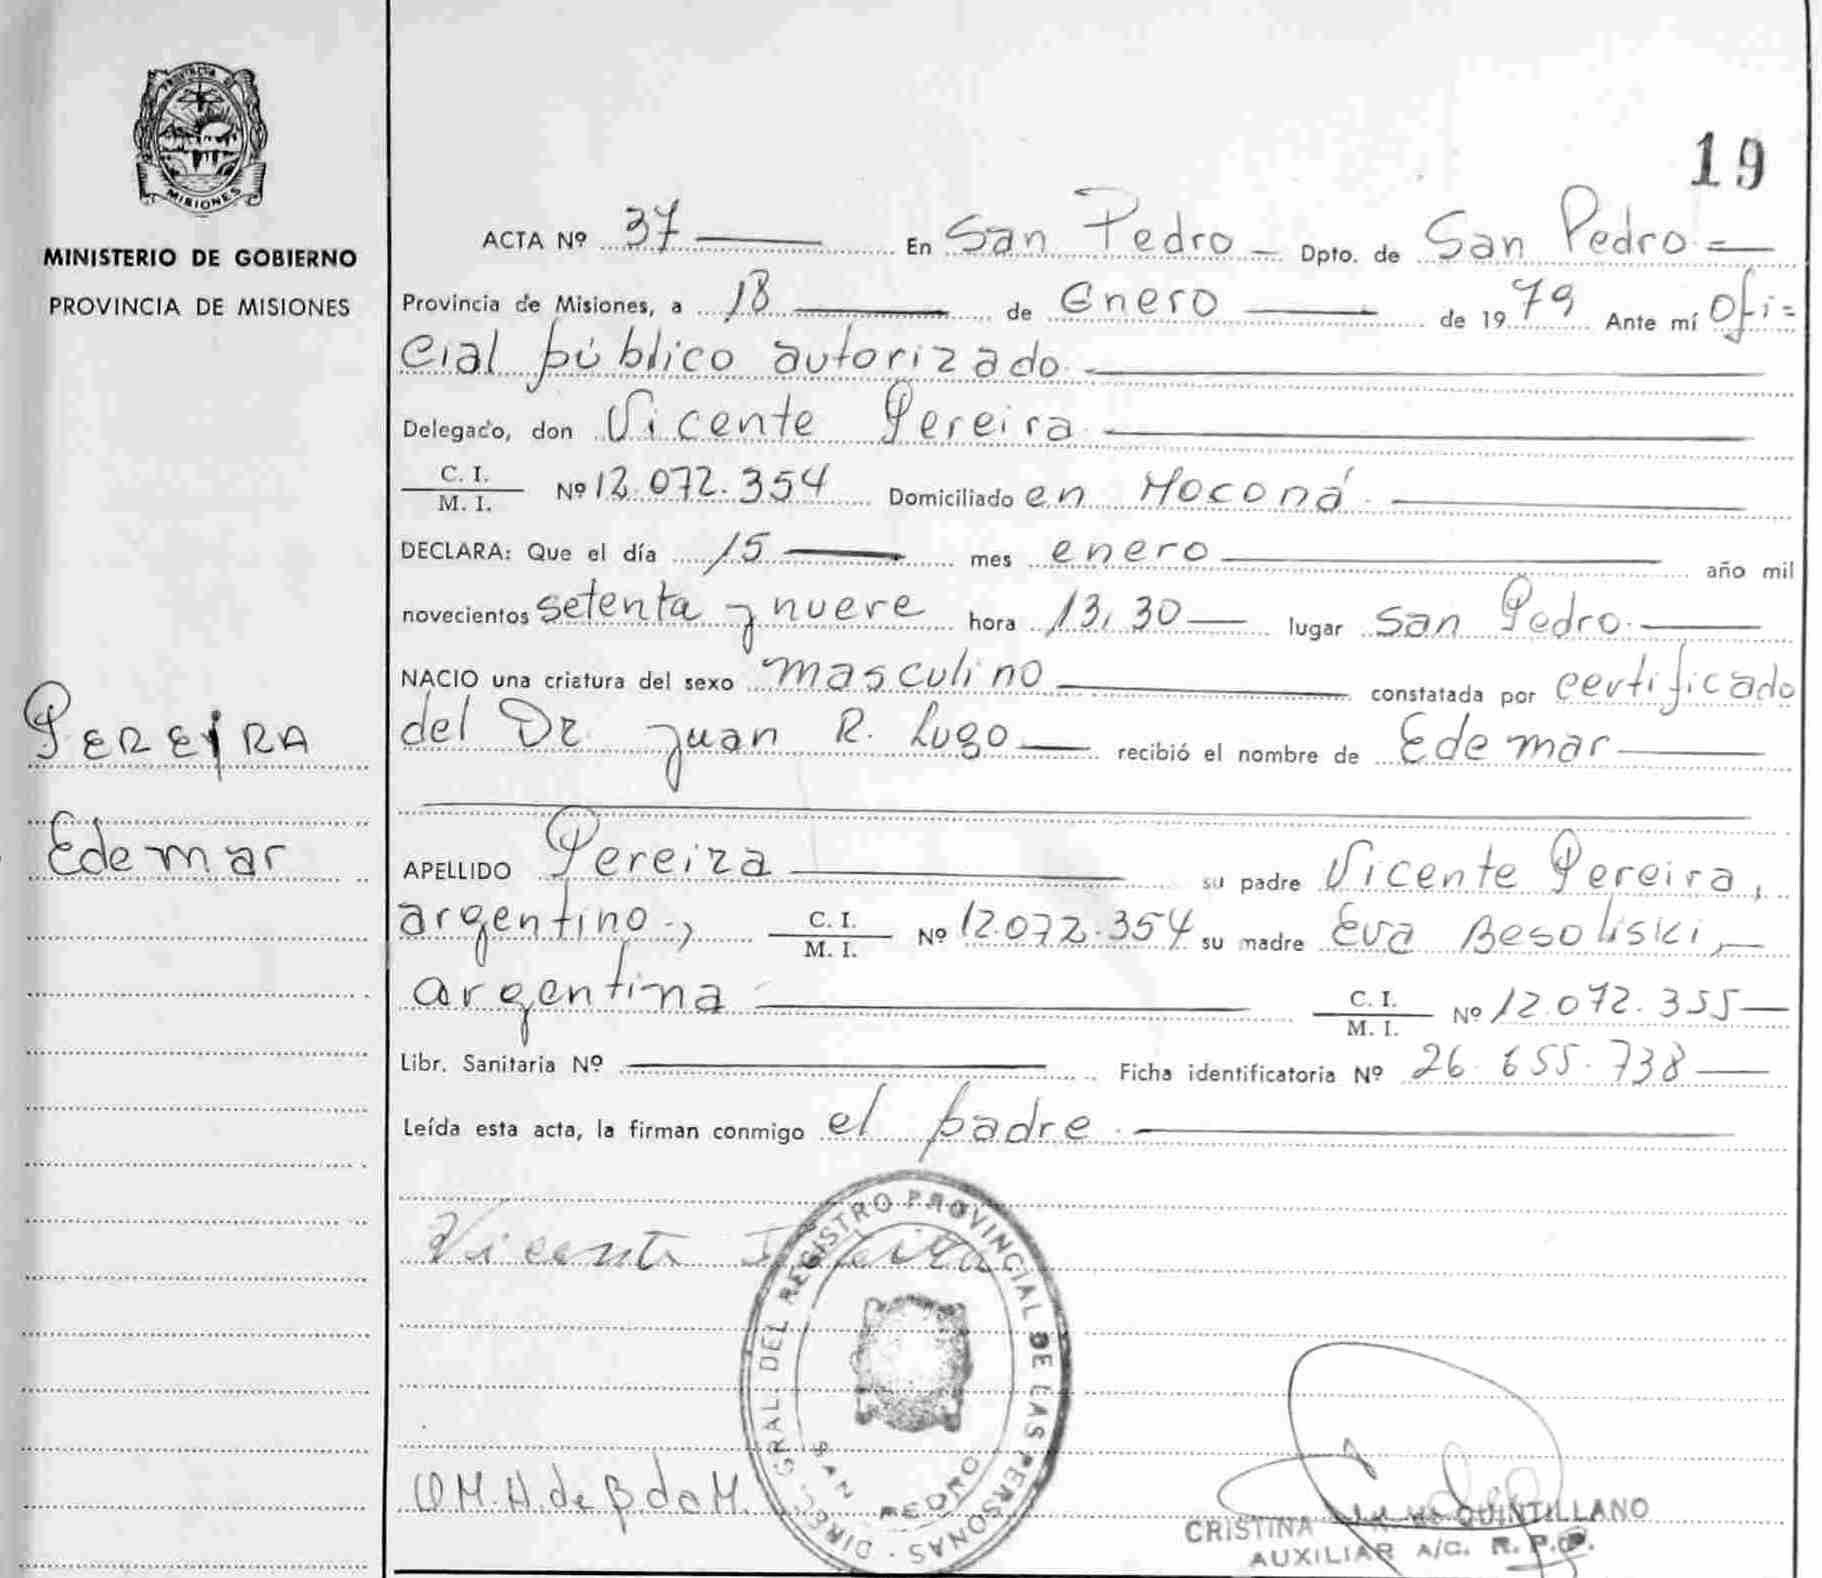 PROVINCIA DE
MISIONES
MINISTERIO DE GOBIERNO
PROVINCIA DE MISIONES
PEREIRA
Edemar
19
ACTA Nº 37 En San Pedro - Dpto. de San Pedro =
Provincia de Misiones, a 18 de Enero de 1979 Ante mí Ofi=
cial público autorizado
Delegado, don Vicente Pereira
C. I.
M. I. Nº 12.072.354 Domiciliado en Moconá
DECLARA: Que el día 15 mes enero año mil
novecientos setenta y nueve hora 13,30 lugar San Pedro.
NACIO una criatura del sexo masculino constatada por certificado
del Dr. Juan R. Lugo recibió el nombre de Edemar
APELLIDO Pereira su padre Vicente Pereira,
argentino., C. I. M. I. Nº 12.072.354 su madre Eva Besoliski,
argentina C. I. M. I. Nº 12.072.355
Libr. Sanitaria Nº Ficha identificatoria Nº 26.655.738
Leída esta acta, la firman conmigo el padre.
Vicente Pereira
DIREC. GRAL. DEL REGISTRO PROVINCIAL DE LAS PERSONAS
SAN PEDRO
CRISTINA QUINTILLANO
AUXILIAR A/C. R. P. P.